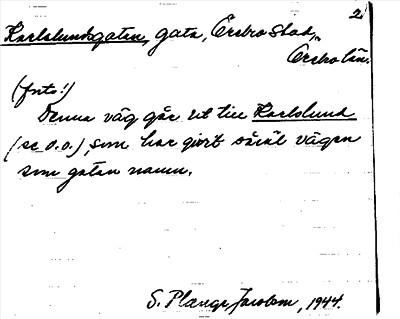 2
Karlslundsgatan, gata, Örebro stad,
Örebro län.
(foto!)
Denna väg går ut till Karlslund
(se d.o.), som har givit såväl vägen
som gatan namn.
S. Plange Jacobson, 1944.